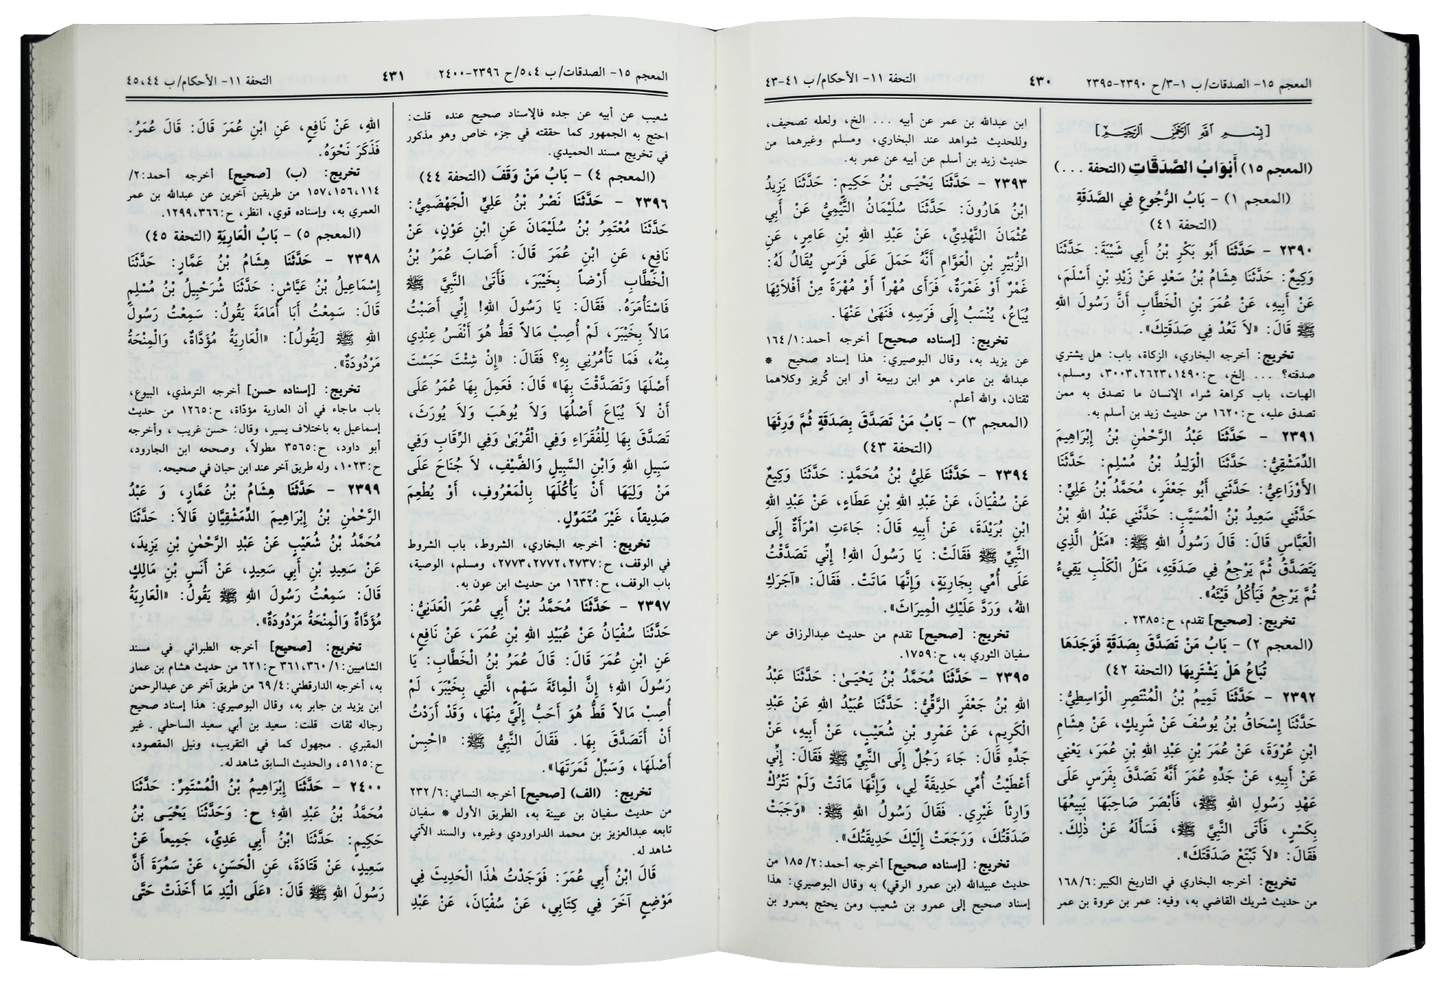 المعجم ١٥- الصدقات/ ب ١-٣/ ح ٢٣٩٠-٢٣٩٥
٤٣٠
التحفة ١١- الأحكام/ ب ٤١-٤٣
[بِسْمِ اللَّهِ الرَّحْمَنِ الرَّحِيمِ]
(المعجم ١٥) أَبْوَابُ الصَّدَقَاتِ (التحفة ...)
(المعجم ١) - بَابُ الرُّجُوعِ فِي الصَّدَقَةِ
(التحفة ٤١)
٢٣٩٠ - حَدَّثَنَا أَبُو بَكْرِ بْنُ أَبِي شَيْبَةَ: حَدَّثَنَا
وَكِيعٌ: حَدَّثَنَا هِشَامُ بْنُ سَعْدٍ عَنْ زَيْدِ بْنِ أَسْلَمَ،
عَنْ أَبِيهِ، عَنْ عُمَرَ بْنِ الْخَطَّابِ أَنَّ رَسُولَ اللهِ
ﷺ قَالَ: «لاَ تَعُدْ فِي صَدَقَتِكَ».
تخريج: أخرجه البخاري، الزكاة، باب: هل يشتري
صدقته؟ ... إلخ، ح: ١٤٩٠، ٢٦٢٣، ٣٠٠٣، ومسلم،
الهبات، باب كراهة شراء الإنسان ما تصدق به ممن
تصدق عليه، ح: ١٦٢٠ من حديث زيد بن أسلم به.
٢٣٩١ - حَدَّثَنَا عَبْدُ الرَّحْمٰنِ بْنُ إِبْرَاهِيمَ
الدِّمَشْقِيُّ: حَدَّثَنَا الْوَلِيدُ بْنُ مُسْلِمٍ: حَدَّثَنَا
الأَوْزَاعِيُّ: حَدَّثَنِي أَبُو جَعْفَرٍ، مُحَمَّدُ بْنُ عَلِيٍّ:
حَدَّثَنِي سَعِيدُ بْنُ الْمُسَيَّبِ: حَدَّثَنِي عَبْدُ اللهِ بْنُ
الْعَبَّاسِ قَالَ: قَالَ رَسُولُ اللهِ ﷺ: «مَثَلُ الَّذِي
يَتَصَدَّقُ ثُمَّ يَرْجِعُ فِي صَدَقَتِهِ، مَثَلُ الْكَلْبِ يَقِيءُ
ثُمَّ يَرْجِعُ فَيَأْكُلُ قَيْئَهُ».
تخريج: [صحيح] تقدم، ح: ٢٣٨٥.
(المعجم ٢) - بَابُ مَنْ تَصَدَّقَ بِصَدَقَةٍ فَوَجَدَهَا
تُبَاعُ هَلْ يَشْتَرِيهَا (التحفة ٤٢)
٢٣٩٢ - حَدَّثَنَا تَمِيمُ بْنُ الْمُنْتَصِرِ الْوَاسِطِيُّ:
حَدَّثَنَا إِسْحَاقُ بْنُ يُوسُفَ عَنْ شَرِيكٍ، عَنْ هِشَامِ
ابْنِ عُرْوَةَ، عَنْ عُمَرَ بْنِ عَبْدِ اللهِ بْنِ عُمَرَ، يَعْنِي
عَنْ أَبِيهِ، عَنْ جَدِّهِ عُمَرَ أَنَّهُ تَصَدَّقَ بِفَرَسٍ عَلَى
عَهْدِ رَسُولِ اللهِ ﷺ، فَأَبْصَرَ صَاحِبَهَا يَبِيعُهَا
بِكَسْرٍ، فَأَتَى النَّبِيَّ ﷺ، فَسَأَلَهُ عَنْ ذٰلِكَ.
فَقَالَ: «لاَ تَبْتَعْ صَدَقَتَكَ».
تخريج: أخرجه البخاري في التاريخ الكبير: ٦/ ١٦٨
من حديث شريك القاضي به، وفيه: عمر بن عروة بن عمر
ابن عبدالله بن عمر عن أبيه ... الخ، ولعله تصحيف،
وللحديث شواهد عند البخاري، ومسلم وغيرهما من
حديث زيد بن أسلم عن أبيه عن عمر به.
٢٣٩٣ - حَدَّثَنَا يَحْيَى بْنُ حَكِيمٍ: حَدَّثَنَا يَزِيدُ
ابْنُ هَارُونَ: حَدَّثَنَا سُلَيْمَانُ التَّيْمِيُّ عَنْ أَبِي
عُثْمَانَ النَّهْدِيِّ، عَنْ عَبْدِ اللهِ بْنِ عَامِرٍ، عَنِ
الزُّبَيْرِ بْنِ الْعَوَّامِ أَنَّهُ حَمَلَ عَلَى فَرَسٍ يُقَالُ لَهُ:
غَمْرٌ أَوْ غَمْرَةٌ، فَرَأَى مُهْراً أَوْ مُهْرَةً مِنْ أَفْلاَئِهَا
يُبَاعُ، يُنْسَبُ إِلَى فَرَسِهِ، فَنَهَى عَنْهَا.
تخريج: [إسناده صحيح] أخرجه أحمد: ١/ ١٦٤
عن يزيد به، وقال البوصيري: هذا إسناد صحيح *
عبدالله بن عامر، هو ابن ربيعة أو ابن كُريز وكلاهما
ثقتان، والله أعلم.
(المعجم ٣) - بَابُ مَنْ تَصَدَّقَ بِصَدَقَةٍ ثُمَّ وَرِثَهَا
(التحفة ٤٣)
٢٣٩٤ - حَدَّثَنَا عَلِيُّ بْنُ مُحَمَّدٍ: حَدَّثَنَا وَكِيعٌ
عَنْ سُفْيَانَ، عَنْ عَبْدِ اللهِ بْنِ عَطَاءٍ، عَنْ عَبْدِ اللهِ
ابْنِ بُرَيْدَةَ، عَنْ أَبِيهِ قَالَ: جَاءَتِ امْرَأَةٌ إِلَى
النَّبِيِّ ﷺ فَقَالَتْ: يَا رَسُولَ اللهِ! إِنِّي تَصَدَّقْتُ
عَلَى أُمِّي بِجَارِيَةٍ، وَإِنَّهَا مَاتَتْ. فَقَالَ: «آجَرَكِ
اللهُ، وَرَدَّ عَلَيْكِ الْمِيرَاثَ».
تخريج: [صحيح] تقدم من حديث عبدالرزاق عن
سفيان الثوري به، ح: ١٧٥٩.
٢٣٩٥ - حَدَّثَنَا مُحَمَّدُ بْنُ يَحْيَى: حَدَّثَنَا عَبْدُ
اللهِ بْنُ جَعْفَرٍ الرَّقِّيُّ: حَدَّثَنَا عُبَيْدُ اللهِ عَنْ عَبْدِ
الْكَرِيمِ، عَنْ عَمْرِو بْنِ شُعَيْبٍ، عَنْ أَبِيهِ، عَنْ
جَدِّهِ قَالَ: جَاءَ رَجُلٌ إِلَى النَّبِيِّ ﷺ فَقَالَ: إِنِّي
أَعْطَيْتُ أُمِّي حَدِيقَةً لِي، وَإِنَّهَا مَاتَتْ وَلَمْ تَتْرُكْ
وَارِثاً غَيْرِي. فَقَالَ رَسُولُ اللهِ ﷺ: «وَجَبَتْ
صَدَقَتُكَ، وَرَجَعَتْ إِلَيْكَ حَدِيقَتُكَ».
تخريج: [إسناده صحيح] أخرجه أحمد: ٢/ ١٨٥ من
حديث عبيدالله (بن عمرو الرقي) به وقال البوصيري: هذا
إسناد صحيح إلى عمرو بن شعيب ومن يحتج بعمرو بن
المعجم ١٥- الصدقات/ ب ٤،٥/ ح ٢٣٩٦-٢٤٠٠
٤٣١
التحفة ١١- الأحكام/ ب ٤٤،٤٥
شعيب عن أبيه عن جده فالإسناد صحيح عنده قلت:
احتج به الجمهور كما حققته في جزء خاص وهو مذكور
في تخريج مسند الحميدي.
(المعجم ٤) - بَابُ مَنْ وَقَفَ (التحفة ٤٤)
٢٣٩٦ - حَدَّثَنَا نَصْرُ بْنُ عَلِيٍّ الْجَهْضَمِيُّ:
حَدَّثَنَا مُعْتَمِرُ بْنُ سُلَيْمَانَ عَنِ ابْنِ عَوْنٍ، عَنْ
نَافِعٍ، عَنِ ابْنِ عُمَرَ قَالَ: أَصَابَ عُمَرُ بْنُ
الْخَطَّابِ أَرْضاً بِخَيْبَرَ، فَأَتَى النَّبِيَّ ﷺ
فَاسْتَأْمَرَهُ. فَقَالَ: يَا رَسُولَ اللهِ! إِنِّي أَصَبْتُ
مَالاً بِخَيْبَرَ، لَمْ أُصِبْ مَالاً قَطُّ هُوَ أَنْفَسُ عِنْدِي
مِنْهُ، فَمَا تَأْمُرُنِي بِهِ؟ فَقَالَ: «إِنْ شِئْتَ حَبَسْتَ
أَصْلَهَا وَتَصَدَّقْتَ بِهَا» قَالَ: فَعَمِلَ بِهَا عُمَرُ عَلَى
أَنْ لاَ يُبَاعَ أَصْلُهَا وَلاَ يُوهَبَ وَلاَ يُورَثَ،
تَصَدَّقَ بِهَا لِلْفُقَرَاءِ وَفِي الْقُرْبَى وَفِي الرِّقَابِ وَفِي
سَبِيلِ اللهِ وَابْنِ السَّبِيلِ وَالضَّيْفِ، لاَ جُنَاحَ عَلَى
مَنْ وَلِيَهَا أَنْ يَأْكُلَهَا بِالْمَعْرُوفِ، أَوْ يُطْعِمَ
صَدِيقاً، غَيْرَ مُتَمَوِّلٍ.
تخريج: أخرجه البخاري، الشروط، باب الشروط
في الوقف، ح: ٢٧٣٧، ٢٧٧٢، ٢٧٧٣، ومسلم، الوصية،
باب الوقف، ح: ١٦٣٢ من حديث ابن عون به.
٢٣٩٧ - حَدَّثَنَا مُحَمَّدُ بْنُ أَبِي عُمَرَ الْعَدَنِيُّ:
حَدَّثَنَا سُفْيَانُ عَنْ عُبَيْدِ اللهِ بْنِ عُمَرَ، عَنْ نَافِعٍ،
عَنِ ابْنِ عُمَرَ قَالَ: قَالَ عُمَرُ بْنُ الْخَطَّابِ: يَا
رَسُولَ اللهِ! إِنَّ الْمِائَةَ سَهْمٍ، الَّتِي بِخَيْبَرَ، لَمْ
أُصِبْ مَالاً قَطُّ هُوَ أَحَبُّ إِلَيَّ مِنْهَا، وَقَدْ أَرَدْتُ
أَنْ أَتَصَدَّقَ بِهَا. فَقَالَ النَّبِيُّ ﷺ: «احْبِسْ
أَصْلَهَا، وَسَبِّلْ ثَمَرَتَهَا».
تخريج: (الف) [صحيح] أخرجه النسائي: ٦/ ٢٣٢
من حديث سفيان بن عيينة به، الطريق الأول * سفيان
تابعه عبدالعزيز بن محمد الدراوردي وغيره، والسند الآتي
شاهد له.
قَالَ ابْنُ أَبِي عُمَرَ: فَوَجَدْتُ هٰذَا الْحَدِيثَ فِي
مَوْضِعٍ آخَرَ فِي كِتَابِي، عَنْ سُفْيَانَ، عَنْ عَبْدِ
اللهِ، عَنْ نَافِعٍ، عَنِ ابْنِ عُمَرَ قَالَ: قَالَ عُمَرُ.
فَذَكَرَ نَحْوَهُ.
تخريج: (ب) [صحيح] أخرجه أحمد: ٢/
١١٤، ١٥٦، ١٥٧ من طريقين آخرين عن عبدالله بن عمر
العمري به، وإسناده قوي، انظر، ح: ٣٦٦، ١٢٩٩.
(المعجم ٥) - بَابُ الْعَارِيَةِ (التحفة ٤٥)
٢٣٩٨ - حَدَّثَنَا هِشَامُ بْنُ عَمَّارٍ: حَدَّثَنَا
إِسْمَاعِيلُ بْنُ عَيَّاشٍ: حَدَّثَنَا شُرَحْبِيلُ بْنُ مُسْلِمٍ
قَالَ: سَمِعْتُ أَبَا أُمَامَةَ يَقُولُ: سَمِعْتُ رَسُولَ
اللهِ ﷺ [يَقُولُ]: «الْعَارِيَةُ مُؤَدَّاةٌ، وَالْمِنْحَةُ
مَرْدُودَةٌ».
تخريج: [إسناده حسن] أخرجه الترمذي، البيوع،
باب ماجاء في أن العارية مؤداة، ح: ١٢٦٥ من حديث
إسماعيل به باختلاف يسير، وقال: حسن غريب، وأخرجه
أبو داود، ح: ٣٥٦٥ مطولاً، وصححه ابن الجارود،
ح: ١٠٢٣، وله طريق آخر عند ابن حبان في صحيحه.
٢٣٩٩ - حَدَّثَنَا هِشَامُ بْنُ عَمَّارٍ، وَ عَبْدُ
الرَّحْمٰنِ بْنُ إِبْرَاهِيمَ الدِّمَشْقِيَّانِ قَالاَ: حَدَّثَنَا
مُحَمَّدُ بْنُ شُعَيْبٍ عَنْ عَبْدِ الرَّحْمٰنِ بْنِ يَزِيدَ،
عَنْ سَعِيدِ بْنِ أَبِي سَعِيدٍ، عَنْ أَنَسِ بْنِ مَالِكٍ
قَالَ: سَمِعْتُ رَسُولَ اللهِ ﷺ يَقُولُ: «الْعَارِيَةُ
مُؤَدَّاةٌ وَالْمِنْحَةُ مَرْدُودَةٌ».
تخريج: [صحيح] أخرجه الطبراني في مسند
الشاميين: ١/ ٣٦٠، ٣٦١ ح: ٦٢١ من حديث هشام بن عمار
به، أخرجه الدارقطني: ٤/ ٦٩ من طريق آخر عن عبدالرحمن
ابن يزيد بن جابر به، وقال البوصيري: هذا إسناد صحيح
رجاله ثقات قلت: سعيد بن أبي سعيد الساحلي. غير
المقبري. مجهول كما في التقريب، ونيل المقصود،
ح: ٥١١٥، والحديث السابق شاهد له.
٢٤٠٠ - حَدَّثَنَا إِبْرَاهِيمُ بْنُ الْمُسْتَمِرِّ: حَدَّثَنَا
مُحَمَّدُ بْنُ عَبْدِ اللهِ؛ ح: وَحَدَّثَنَا يَحْيَى بْنُ
حَكِيمٍ: حَدَّثَنَا ابْنُ أَبِي عَدِيٍّ، جَمِيعاً عَنْ
سَعِيدٍ، عَنْ قَتَادَةَ، عَنِ الْحَسَنِ، عَنْ سَمُرَةَ أَنَّ
رَسُولَ اللهِ ﷺ قَالَ: «عَلَى الْيَدِ مَا أَخَذَتْ حَتَّى